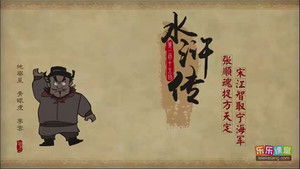 水浒传
宋江智取宁海军
张顺魂捉方天定
地察星
青眼虎
李云
乐乐课堂
leleketang.com